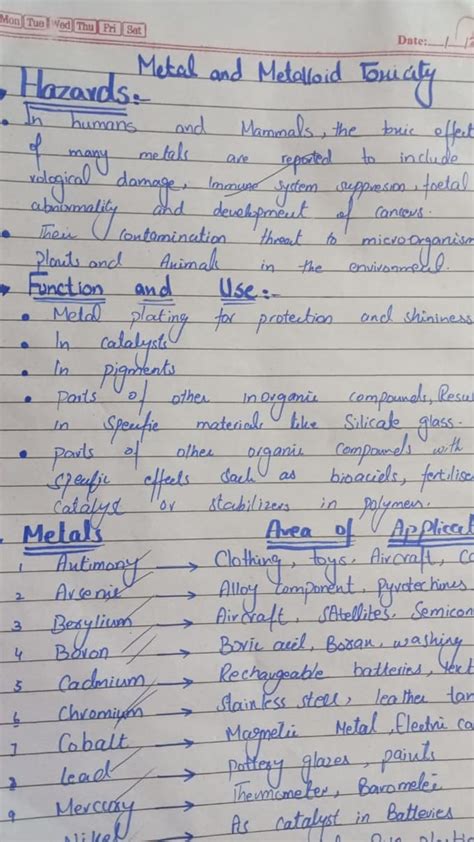 Mon Tue Wed Thu Fri Sat
Date:
Metal and Metalloid Toxicity
Hazards:-
In humans and Mammals, the toxic effect
of many metals are reported to include
rological damage, Immune system suppresion, foetal
abnormality and development of cancers.
Their contamination threat to microorganism
Plants and Animals in the environment.
Function and Use:-
Metal plating for protection and shininess
In catalysts
In pigments
Parts of other inorganic compounds, Resu
in Specific materials like Silicate glass.
Parts of other organic compounds with
specific effects such as bioaciels, fertilise
catalyst or stabilizers in polymers.
Metals Area of Applicat
1 Antimony → Clothing, toys, Aircraft, Co
2 Arsenic → Alloy component, Pyrotechines
3 Berylium → Aircraft, SAtellites. Semicon
4 Boron → Boric acid, Boran, washing
5 Cadmium → Rechangeable batteries, text
6 Chromium → Stainless steel, leather tan
7 Cobalt → Magnetic Metal, Electric ca
8 Lead → pottery glazes, paints
9 Mercury → Thermometer, Barometer
Nikel → As catalyst in Batteries